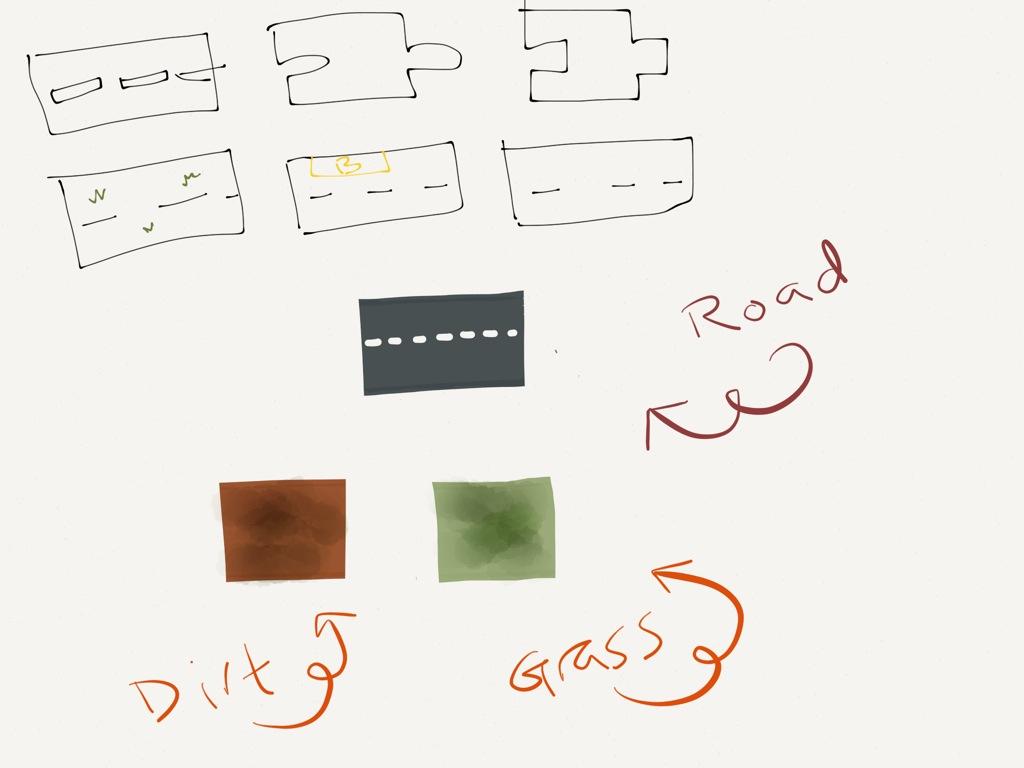 B
Road
Dirt
Grass